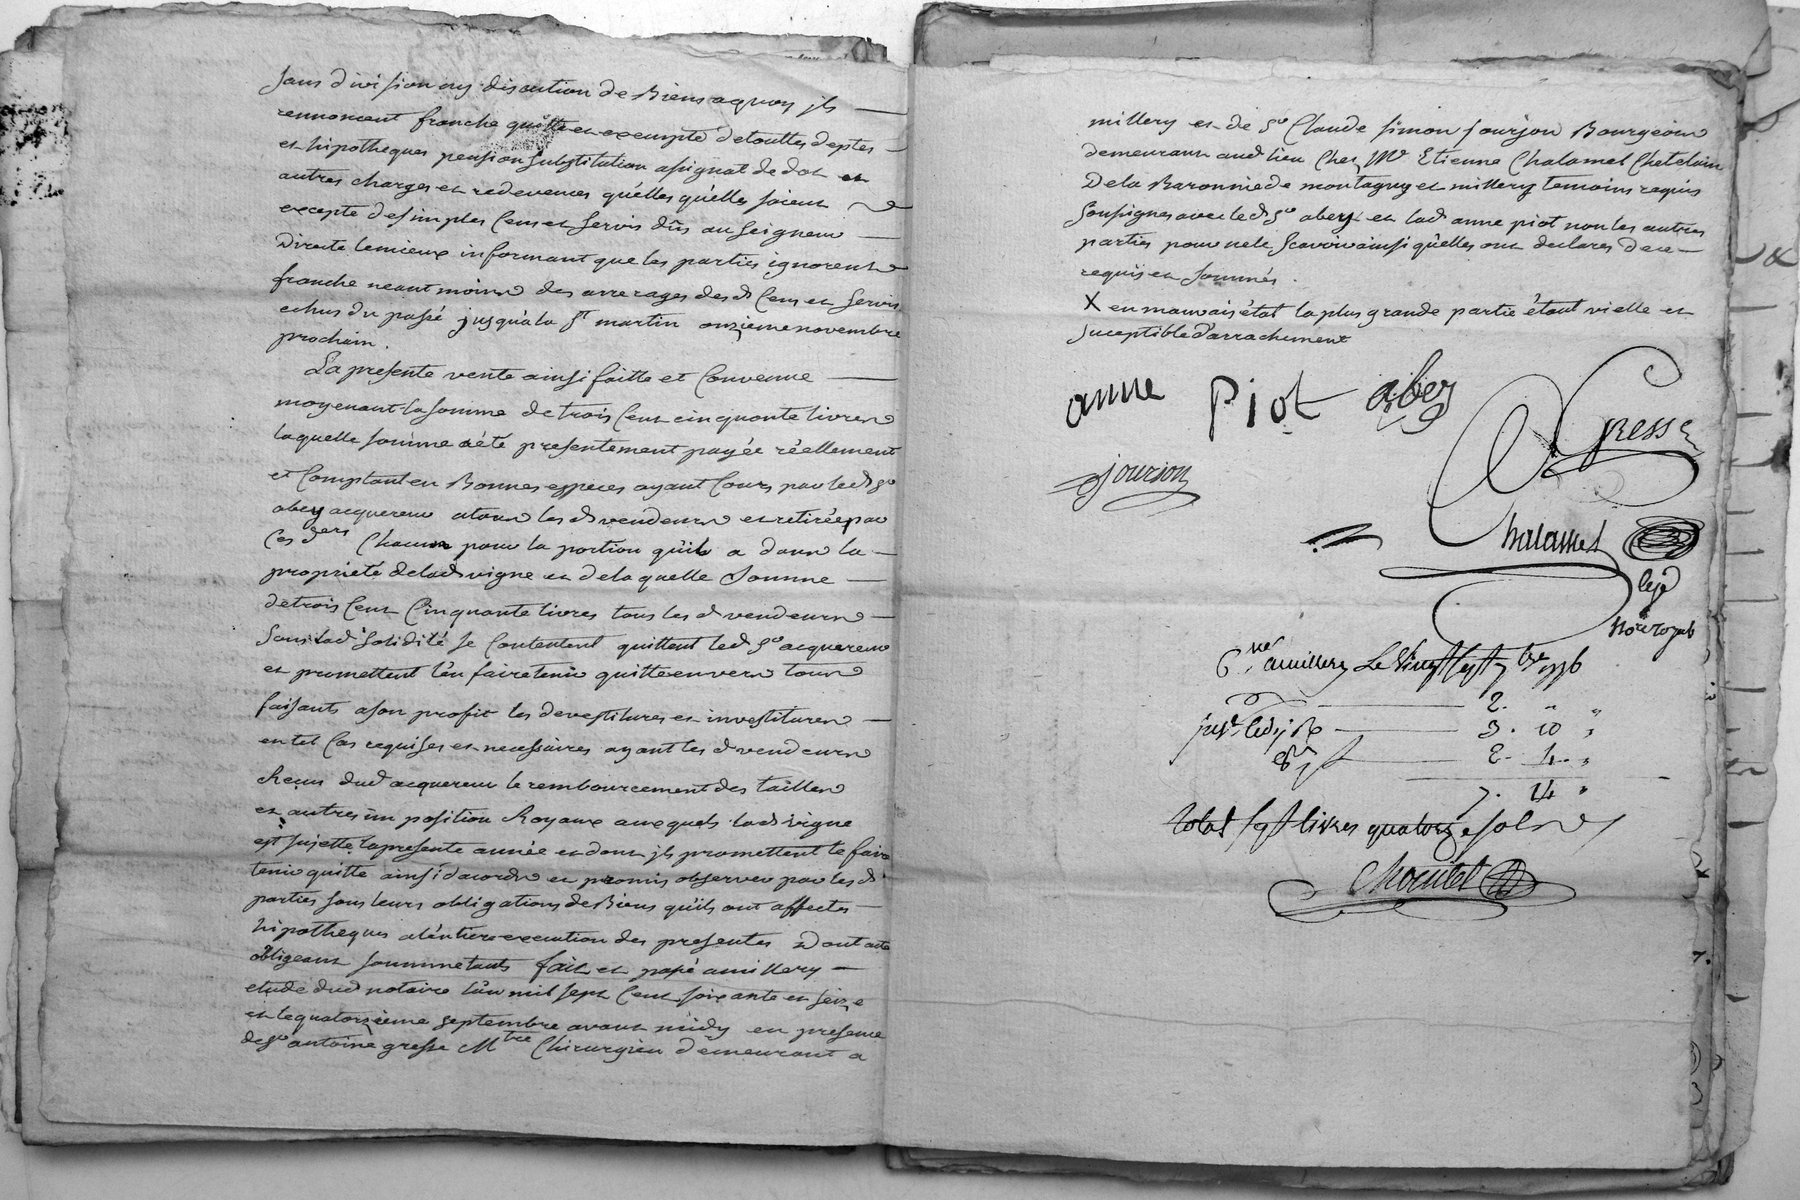 sans division ny discution de Biens aquoy ils
renoncent franche quitte et exempte de touttes deptes
et hipotheques pension substitution assignat de dot et
autres charges et redevences qu'elles qu'elles soient
excepté de simples Cens et servis dûs au seigneur
Directe lemieux informant que les parties ignorent
franche neantmoins des arrerages desd Cens et servis
echus du passé jusqu'a la St martin onzieme novembre
prochain.
La presente vente ainsi faitte et Convenue
moyenant la somme de trois Cent cinquante livres
laquelle somme a été presentement payée réellement
et Comptant en Bonnes especes ayant Cours par led sr
abey acquereur a tous les d vendeurs et retirée par
Ces ders Chacun pour la portion qu'il a dans la
proprieté delad vigne et de la quelle somme
de trois Cent Cinquante livres tous les d vendeurs
sous lad solidité se Contentent quittent led sr acquereur
et promettent l'en faire tenir quitte envers tous
faisants a son profit les devestitures et investitures
en tel Cas requises et necessaires ayant les d vendeurs
Recus dud acquereur le remboursement des tailles
et autres im position Royaux auxquels lad vigne
est sujette la presente année et dont ils promettent le faire
tenir quitte ainsi d'acord et promis observer par les d
parties sous leurs obligations de Biens qu'ils ont affectes
hipotheques a l'entiere execution des presentes Dont acte
obligeant soummetants fait et passé a millery
etude dud notaire l'an mil sept Cent soixante et seize
et le quatorzieme septembre avant midy en presence
de sr antoine gresse Mtre Chirurgien demeurant a
millery et de sr Claude simon jourjon Bourgeois
demeurant aud lieu Chez Mr Etienne Chalamel Chatelain
De la Baronnie de montagny et millery temoins requis
soussignes avec led sr abey et lad anne piot non les autres
parties pour ne le scavoir ainsi qu'elles ont declares de ce
requis et sommés.
X en mauvais état la plus grande partie étant vielle et
suceptible d'arrachement
anne piot abey
Gresse
jourjon
Chalamel
Nore royal
Cné a millery Le vingt sept 7bre 1776
2. " "
3. 10 "
2. 4. "
7. 14 "
total sept livres quatorze sols